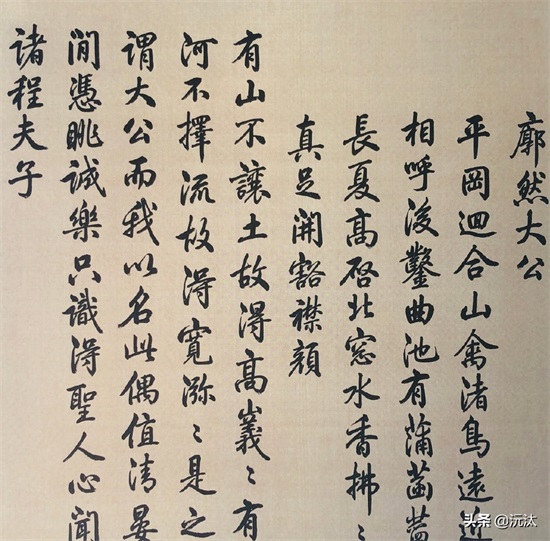 廓然大公
平岡迴合山禽渚鳥遠近
相呼後鑿曲池有蒲菡萏
長夏高啓北窓水香拂〻
真足開豁襟顔
有山不讓土故得高峩〻有
河不擇流故得寬瀰〻是之
謂大公而我以名此偶值清晏
閒憑眺誠樂只識得聖人心聞
諸程夫子
头条 @沅汰